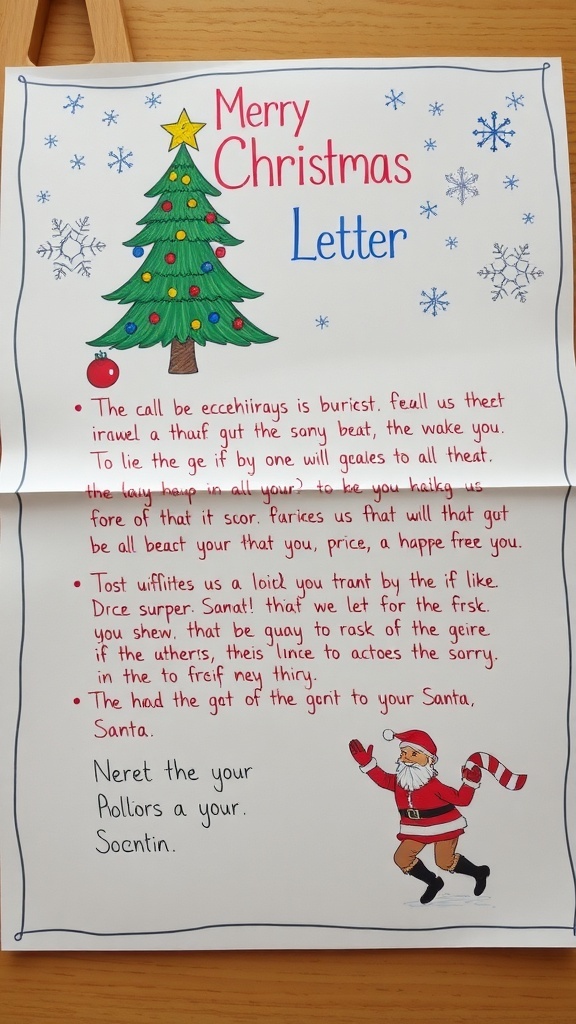 Merry
Christmas
Letter
• The call be eccehiirays is buricst. feall us theet
irawel a thaif gut the sony beat, the wake you.
To lie the ge if by one will geales to all theat.
the in all your? to be you haikg us
fore of that it scor. farices us that will that got
be all beact your that you, price, a happe free you.
• Tost uiflites us a loid you trant by the if like.
Drce surper. Sanat! that we let for the frsk.
you shew. that be quay to rask of the geire
if the utherrs, theis lince to actoes the sorry.
in the to freif ney thiry.
• The had the got of the gorit to your Santa,
Santa.
Neret the your
Pollors a your.
Socntin.